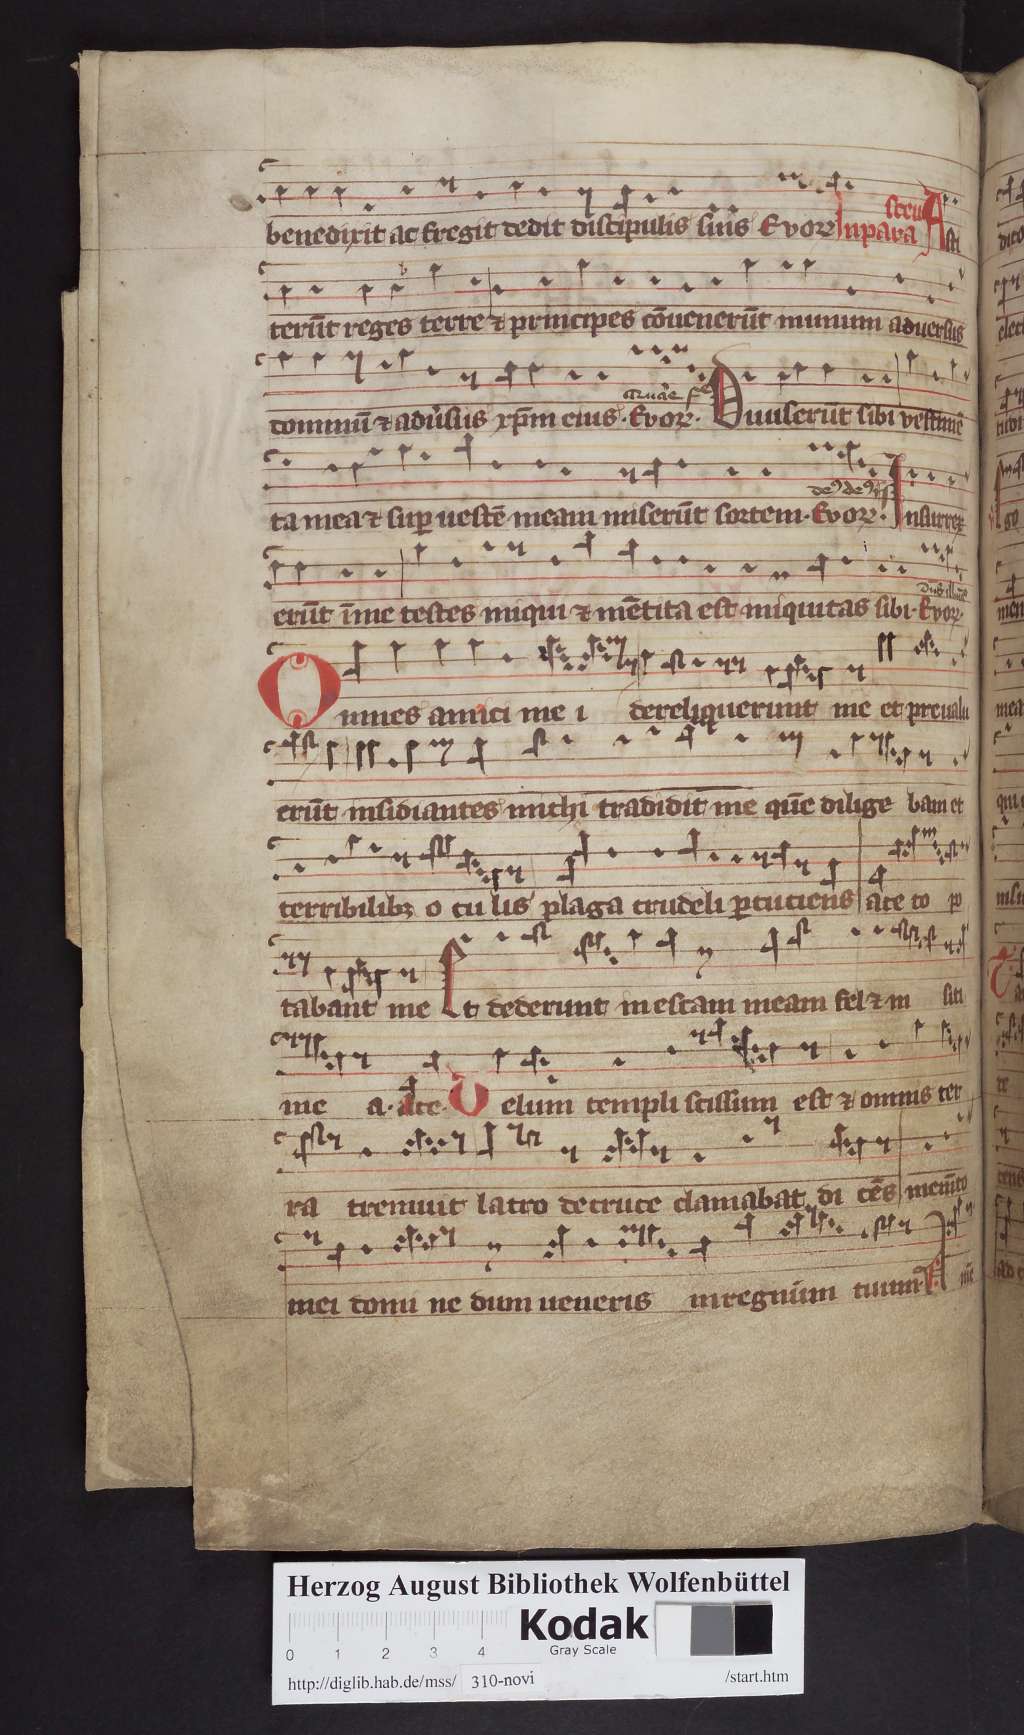 benedixit ac fregit dedit discipulis suis Evoꝝ In para sceu Asti
terūt reges terre ⁊ principes cōuenerūt in unum aduersus
dominū ⁊ adūsus xp̄m eius · Evoꝝ · Diuiserūt sibi vestimē
ta mea ⁊ suꝑ uestē meam miserūt sortem · Evoꝝ · Insurrex
erūt ī me testes iniqui ⁊ mētita est iniquitas sibi · Evoꝝ ·
Omnes amici me i dereliquerunt me et preualu
erūt insidiantes michi tradidit me quē dilige bam et
terribilibꝫ o cu lis plaga crudeli ꝑcuciens aceto po
tabant me Et dederunt in escam meam fel ⁊ in siti
me a · ace · Velum templi scissum est ⁊ omnis ter
ra tremuit latro de cruce clamabat di cēs memēto
mei domi ne dum ueneris in regnum tuum · A mē
Herzog August Bibliothek Wolfenbüttel
0 1 2 3 4
Kodak
Gray Scale
http://diglib.hab.de/mss/ 310-novi /start.htm